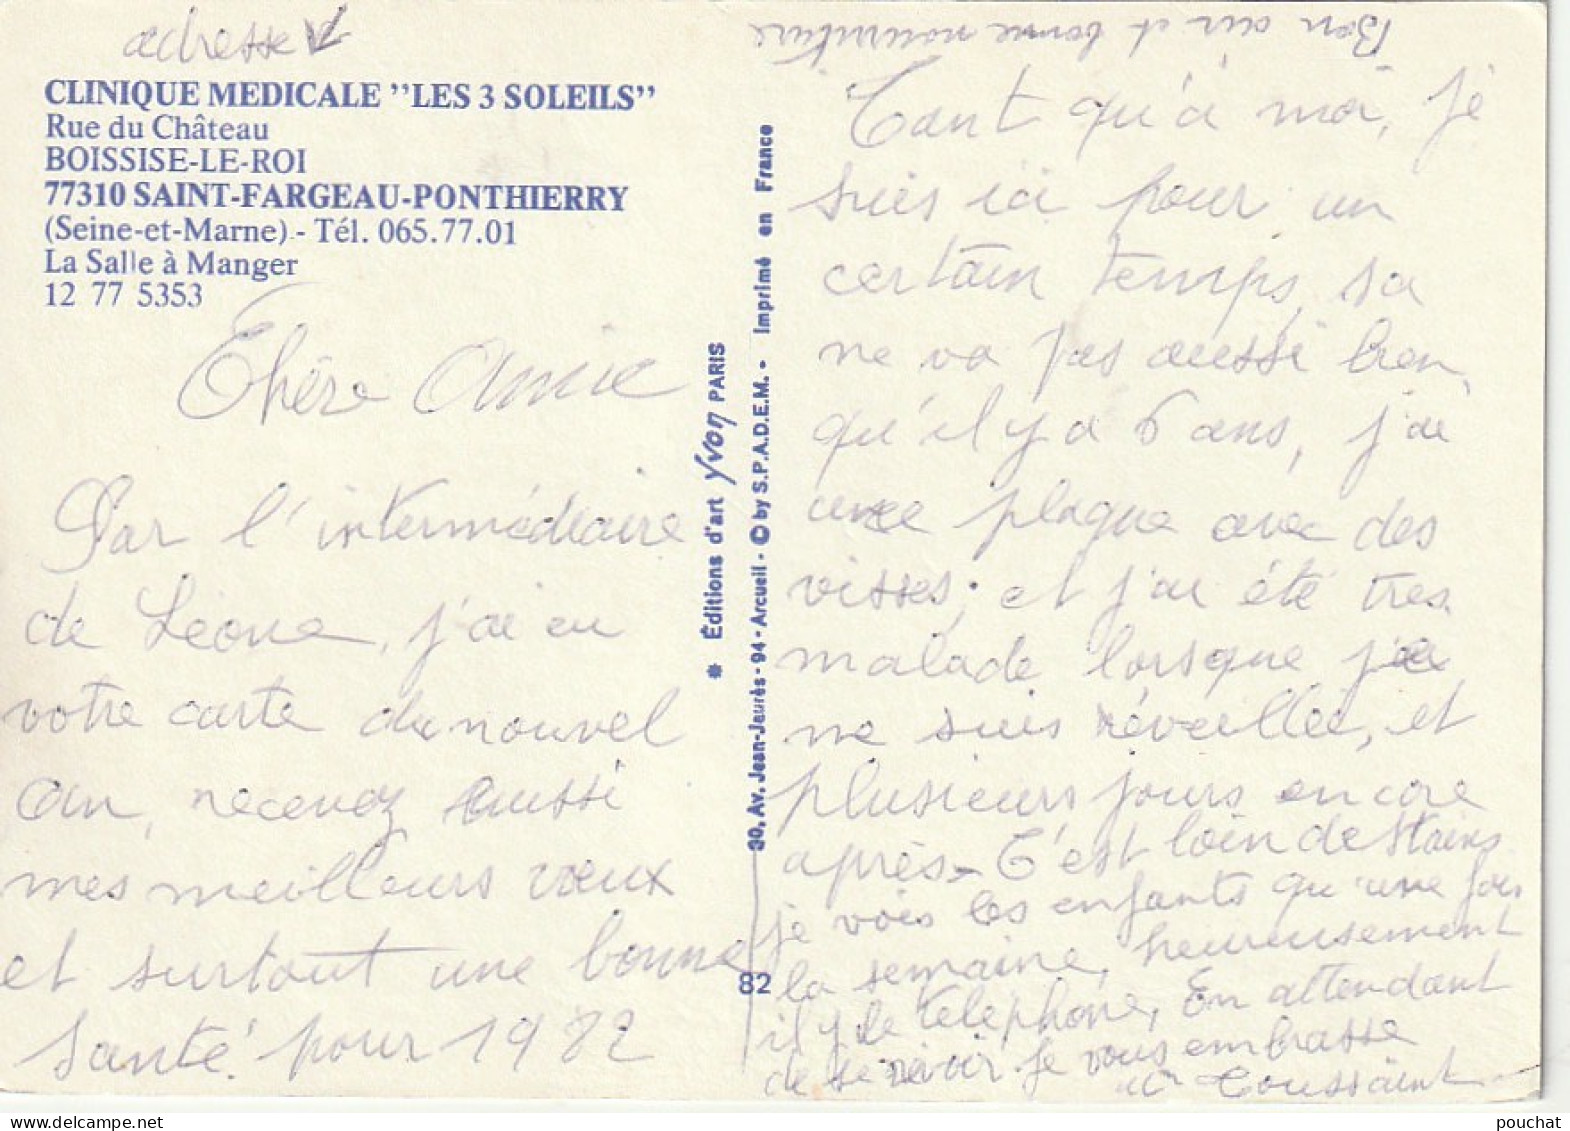 adresse
CLINIQUE MEDICALE ''LES 3 SOLEILS''
Rue du Château
BOISSISE-LE-ROI
77310 SAINT-FARGEAU-PONTHIERRY
(Seine-et-Marne) - Tél. 065.77.01
La Salle à Manger
12 77 5353
Chère Amie
Par l'intermédiaire
de Léone, j'ai eu
votre carte du nouvel
an, recevez aussi
mes meilleurs vœux
et surtout une bonne
santé pour 1982
* Éditions d'art Yvon PARIS
30, Av. Jean-Jaurès - 94 - Arcueil - © by S.P.A.D.E.M. - Imprimé en France
82
Bon air et bonne nourriture
Tant qu'à moi, je
suis ici pour un
certain temps, sa
ne va pas aussi bien
qu'il y a 6 ans, j'ai
une plaque avec des
visses, et j'ai été tres
malade lorsque j'ai
me suis réveillée, et
plusieurs jours encore
après - C'est loin de Stains
je vois les enfants qu'une fois
la semaine, heureusement
il y le téléphone, En attendant
de se revoir. Je vous embrasse
Toussaint
pouchat